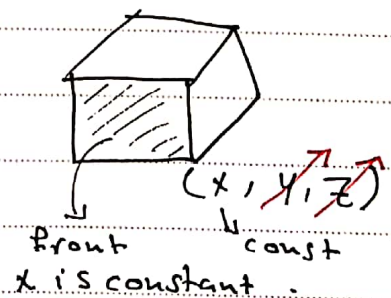 (x, y, z)
front const
x is constant.